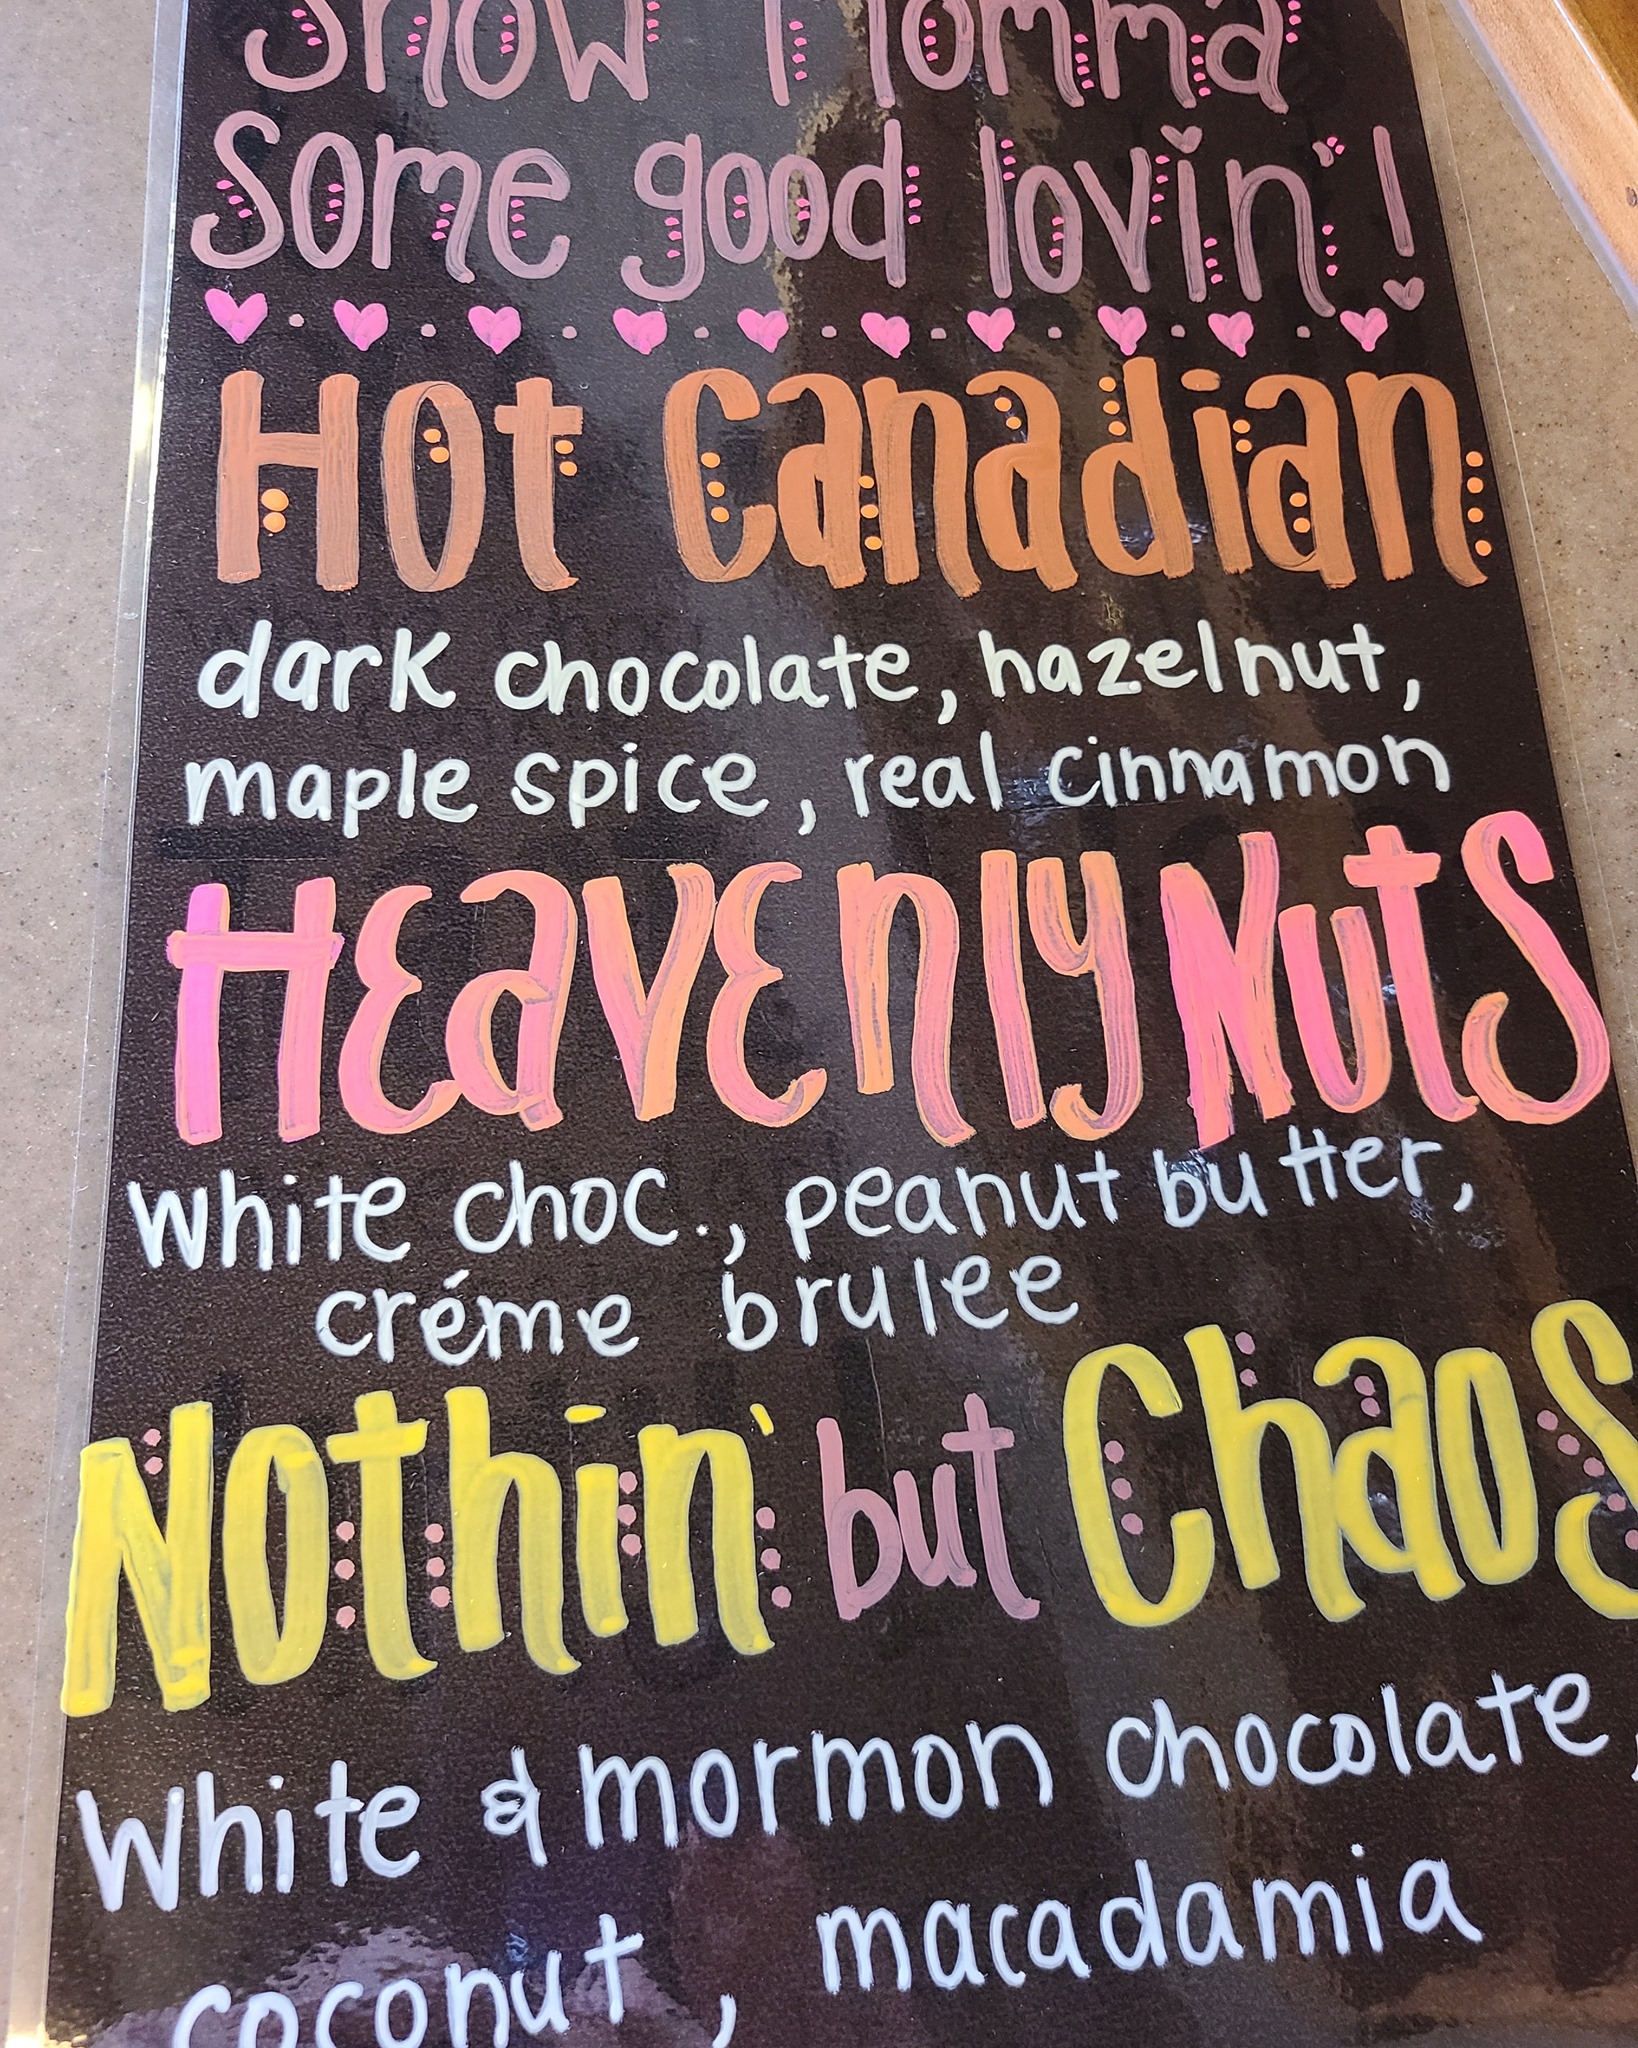 Show Momma
Some good lovin'!
Hot Canadian
dark chocolate, hazelnut,
maple spice, real cinnamon
HEavEnly Nuts
White choc., peanut butter,
créme brulee
Nothin' but Chaos
White & mormon chocolate,
coconut, macadamia